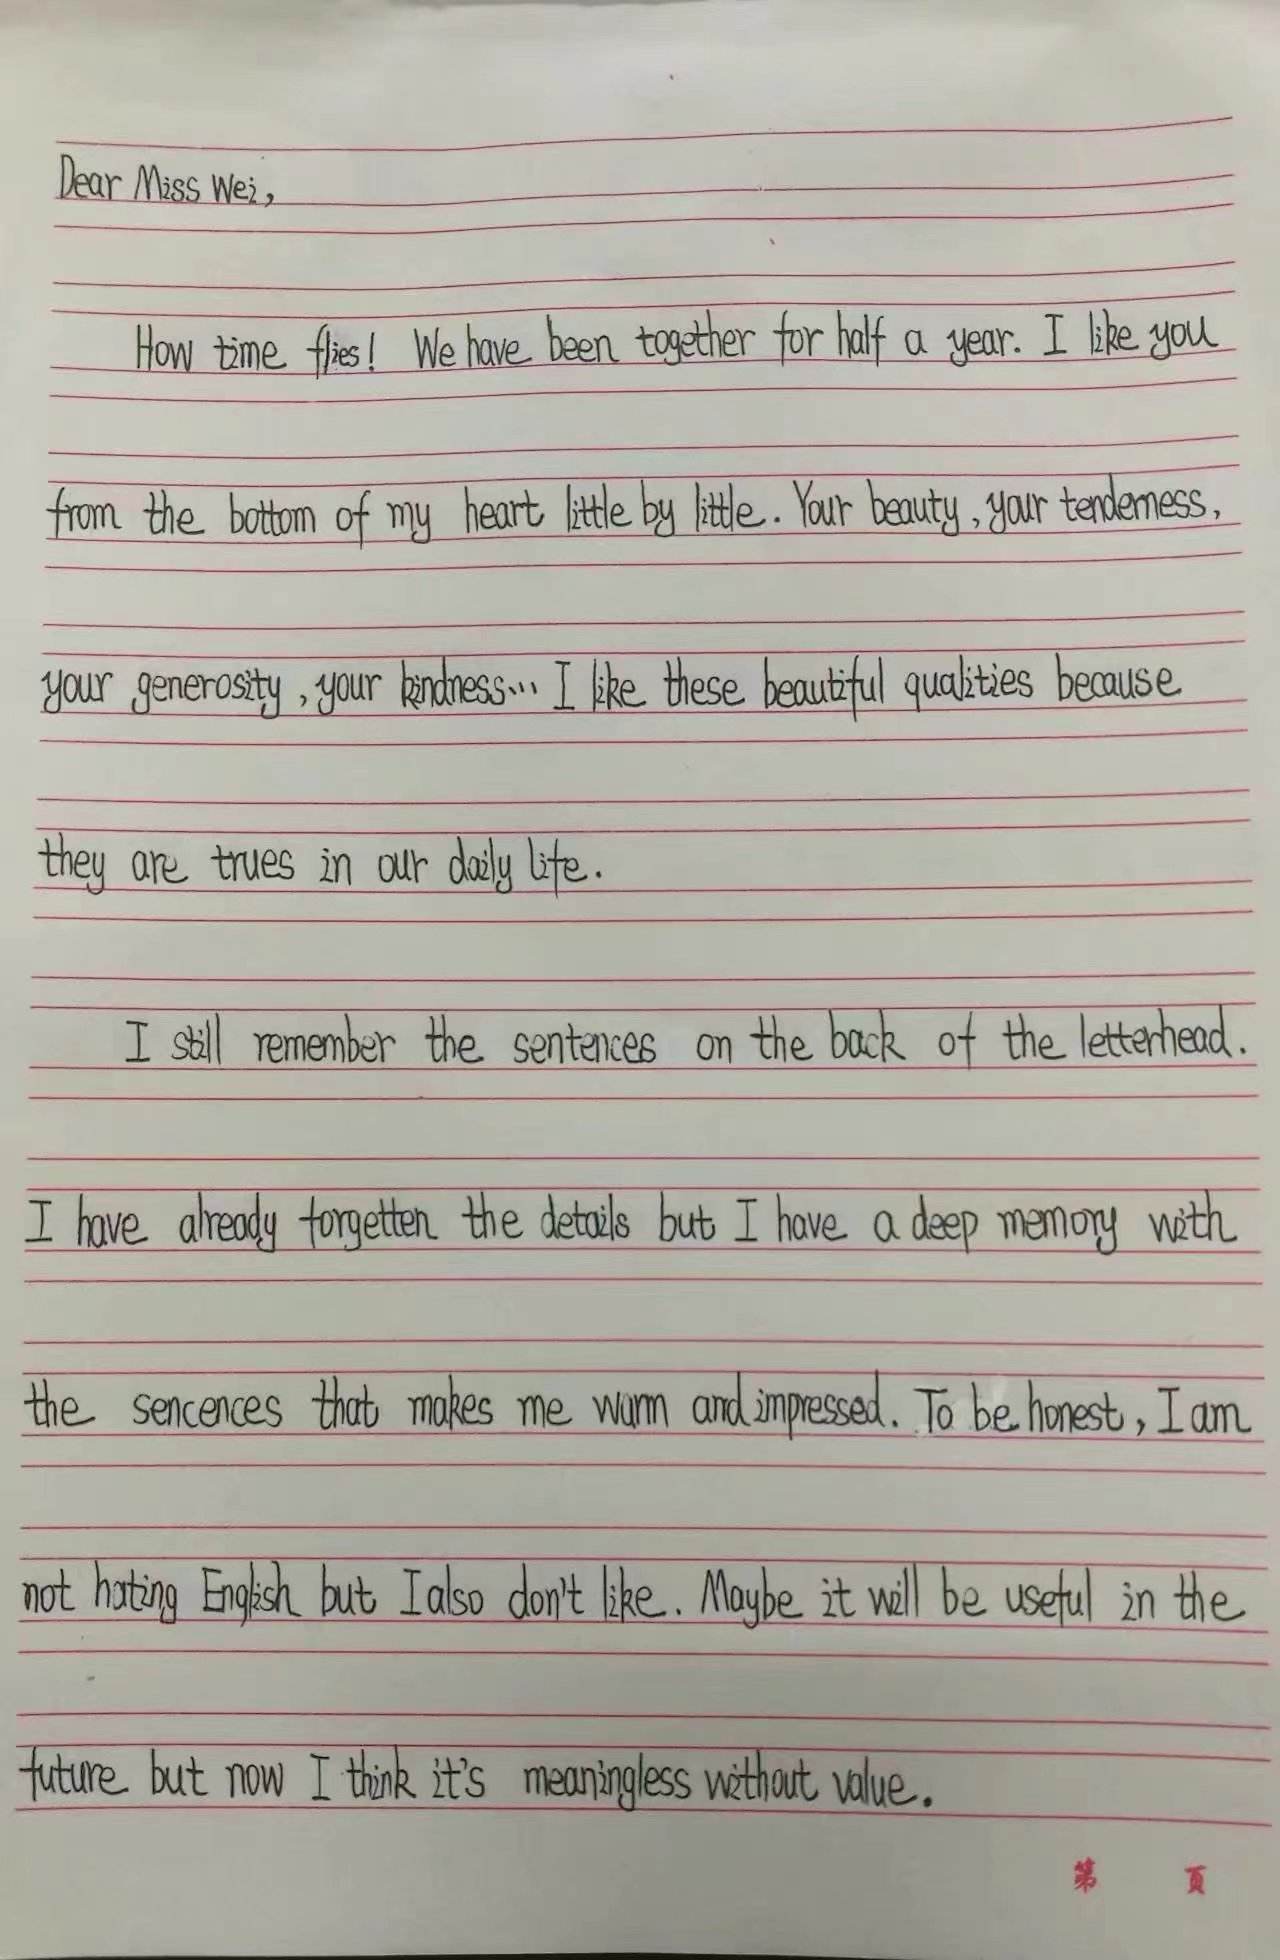 Dear Miss Wei,
How time flies! We have been together for half a year. I like you
from the bottom of my heart little by little. Your beauty, your tenderness,
your generosity, your kindness... I like these beautiful qualities because
they are trues in our daily life.
I still remember the sentences on the back of the letterhead.
I have already forgetten the details but I have a deep memory with
the sencences that makes me warm and impressed. To be honest, I am
not hating English but I also don't like. Maybe it will be useful in the
future but now I think it's meaningless without value.
第 页